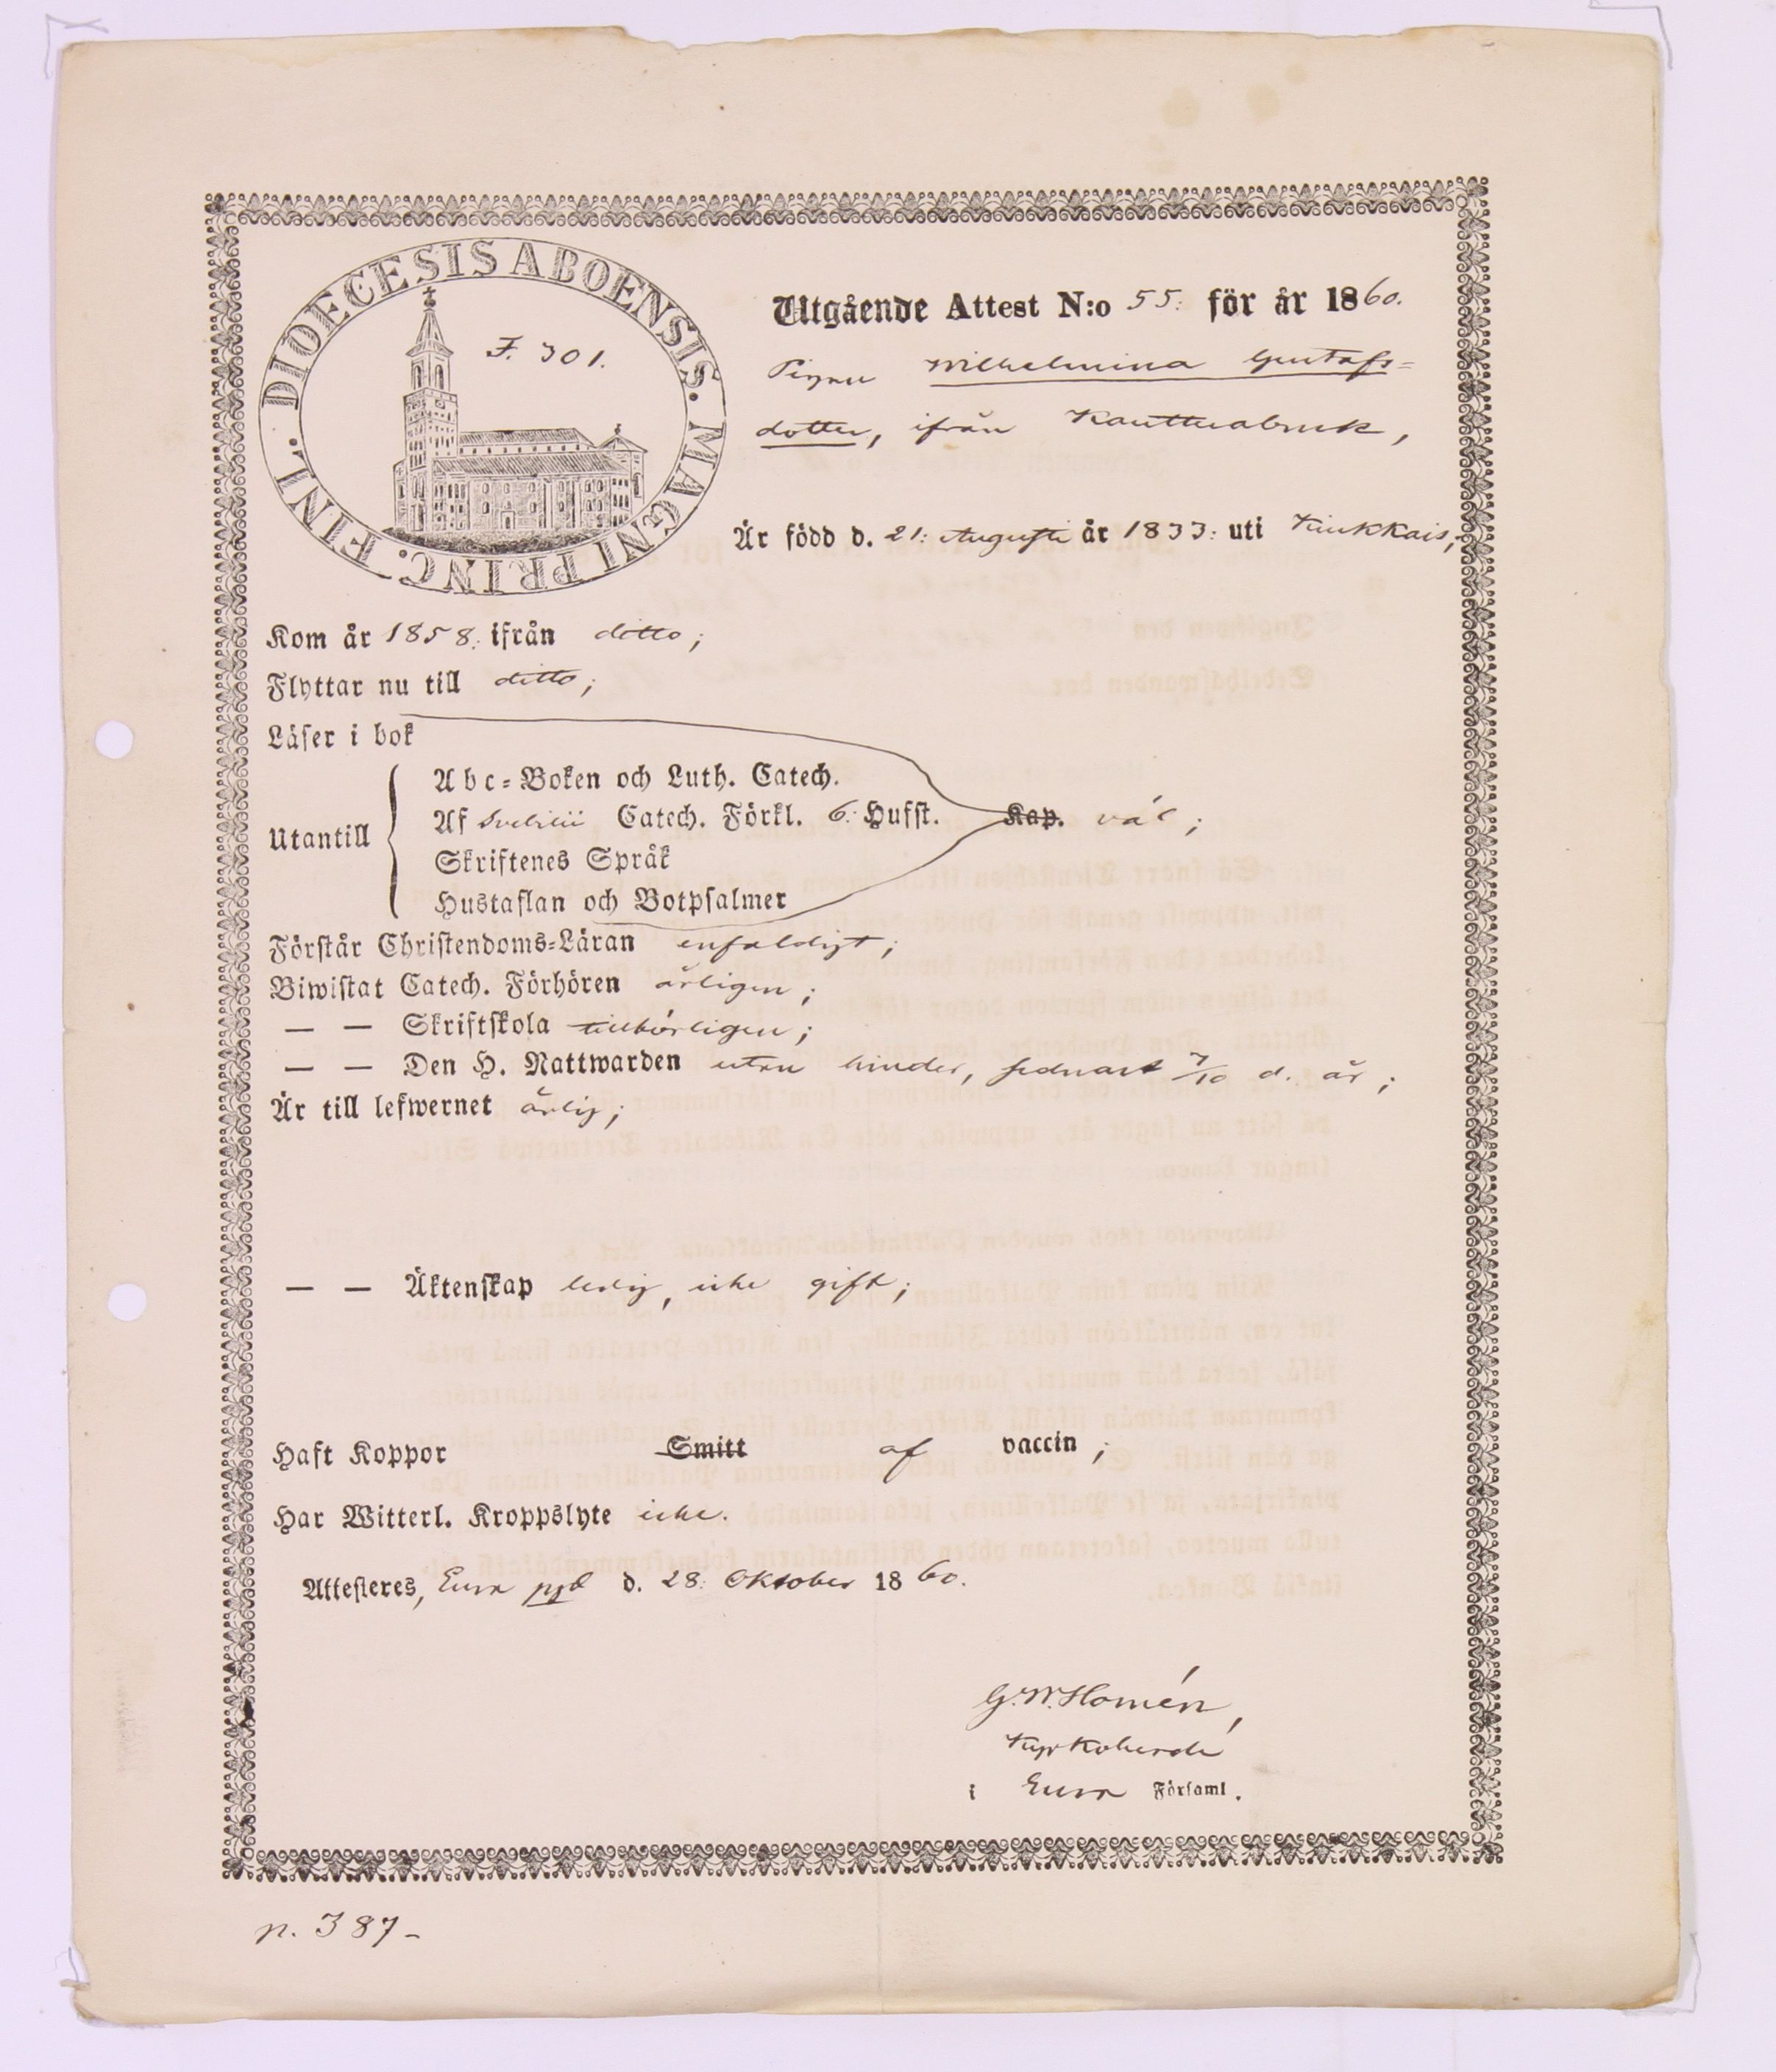 DIOECESIS ABOENSIS. MAGNI PRINC. FINL.
F. 301.
Utgående Attest N:o 55. för år 1860.
Pigan Wilhelmina Gustafs=
dotter, ifrån Kauttuabruk,
Är född d. 21: Augusti år 1833: uti Kiukkais;
Kom år 1858: ifrån ditto;
Flyttar nu till ditto;
Läser i bok
Utantill
Abc=Boken och Luth. Catech.
Af Svebilii Catech. Förkl. 6: Hufst. Kap. väl;
Skriftenes Språk
Hustaflan och Botpsalmer
Förstår Christendoms=Läran enfaldigt;
Biwistat Catech. Förhören årligen;
— — Skriftskola tillbörligen;
— — Den H. Nattwarden utan hinder, sednast 7/10 d. år;
Är till lefwernet ärlig;
— — Äktenskap ledig, icke gift;
Haft Koppor Smitt af vaccin;
Har Witterl. Kroppslyte icke.
Attesteres, Eura pgd d. 28: Oktober 1860.
G. W. Homén,
Kyrkoherde
i Eura Församl.
p. 387-